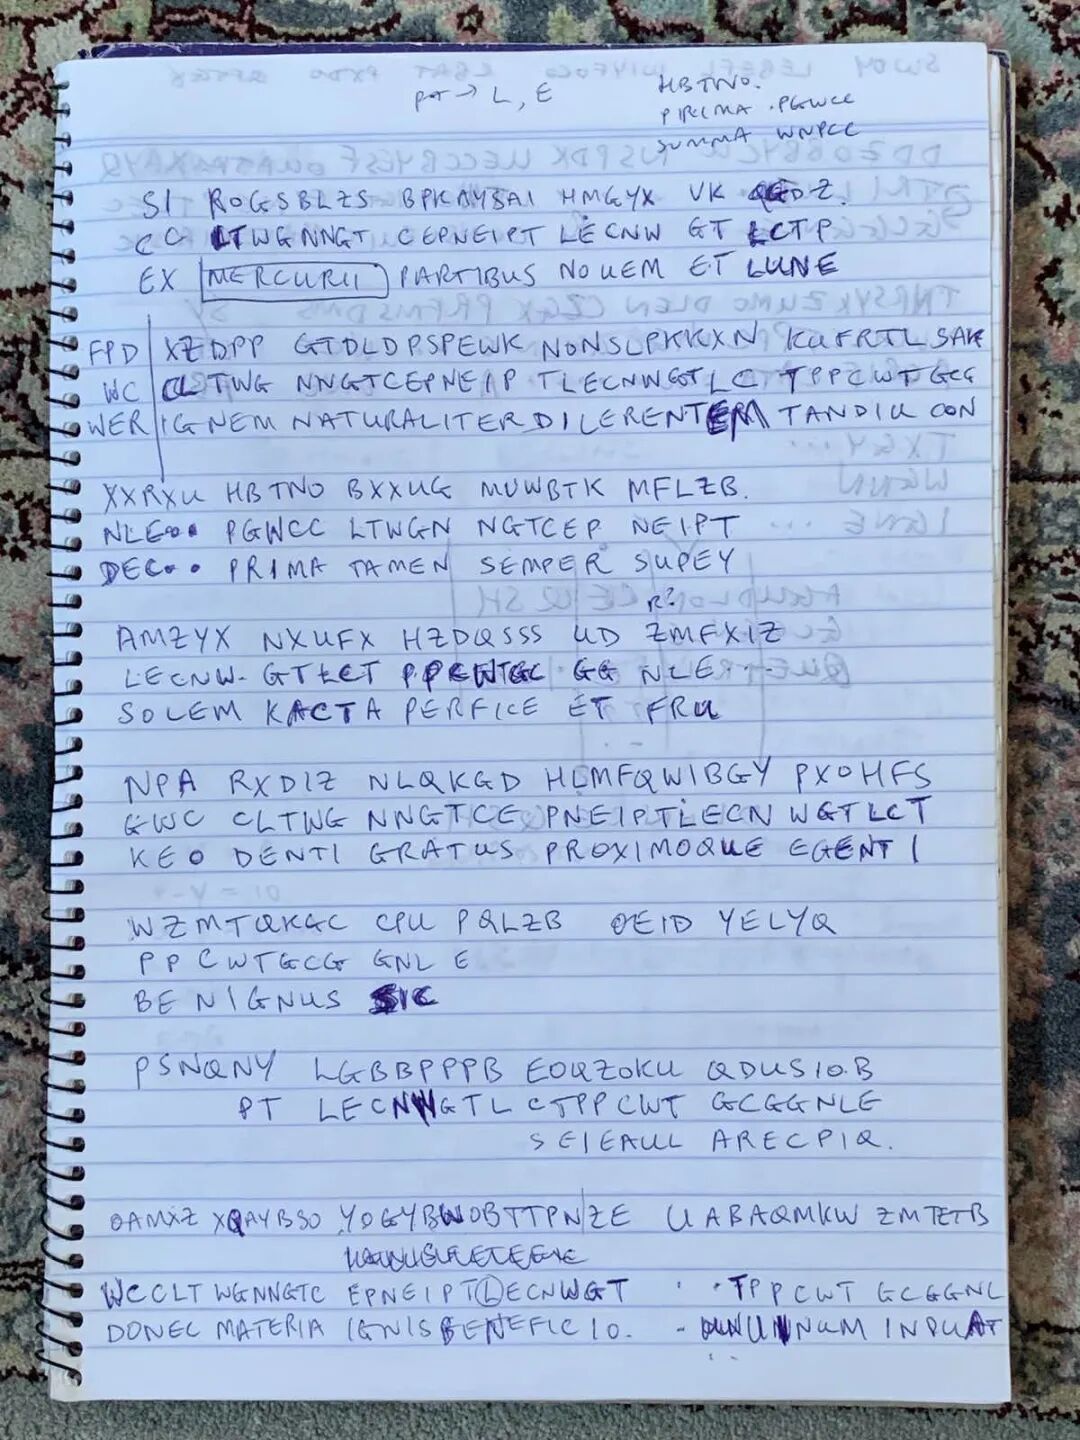 → L, E
HBTNO.
PRIMA .PGWCC
SUMMA WNPCC
SI ROGSBLZS BPKAYBAI HMGYX VK QGDZ.
CC LTWGNNGT CEPNEIPT LECNW GT LCTP
EX MERCURII PARTIBUS NOUEM ET LUNE
FPD XZDPP GTDLDPSPEWK NONSLPKKXN KUFRTLSAK
WC CLTWG NNGTCEPNEIP TLECNNGTLC TPPCWTGCG
WER IGNEM NATURALITER DILERENTEM TANDIU CON
XXRXU HBTNO BXXUG MUWBTK MFLZB.
NLE•• PGWCC LTWGN NGTCEP NEIPT
DEC•• PRIMA TAMEN SEMPER SUPEY
R?
AMZYX NXUFX HZDQSSS UD ZMFXIZ
LECNW. GTLCT PPCWTGC GG NLE
SOLEM KACTA PERFICE ET FRU
NPA RXDIZ NLQKGD HLMFQWIBGY PXOHFS
GWC CLTWG NNGTCE PNEIPTLECN WGTLCT
KEO DENTI GRATUS PROXIMOQUE EGENTI
WZMTQKGC CPU PQLZB OEID YELYQ
PPCWTGCG GNLE
BENIGNUS SIC
PSNQNY LGBBPPPB EOQZOKU QDUSIOB
PT LECNWGTL CTPPCWT GCGGNLE
SEIEAUL ARECPIQ.
OAMXZ XQAYBSO YOGYBWOBTTPN/ZE UABAQMKW ZMTETB
WCCLT WGNNGTC EPNEIPTLECNWGT · · TPPCWT GCGGNL
DONEC MATERIA IGNIS BENEFICIO. - NUM INDUAT